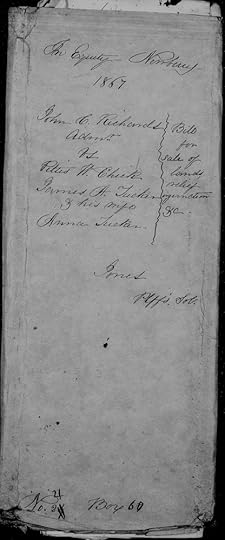 In Equity Newberry
1867
John C. Richards
Admr.
Vs.
Pettis W. Chick
James A. Tucker
& his wife
Anna Tucker.
Bill
for
sale of
lands,
relief
injunction
&c.
Jones
Plffs. Sol.
No. 21
Box 60